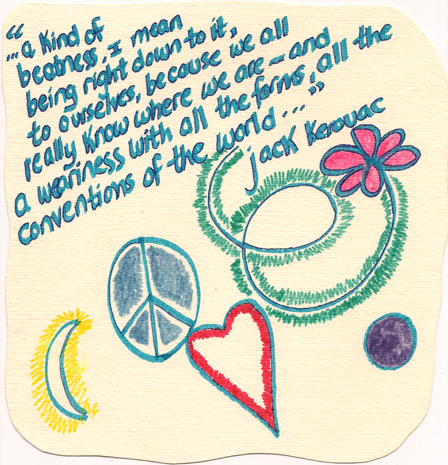 "...a kind of
beatness. I mean
being right down to it,
to ourselves, because we all
really know where we are — and
a weariness with all the forms, all the
conventions of the world..."
Jack Kerouac